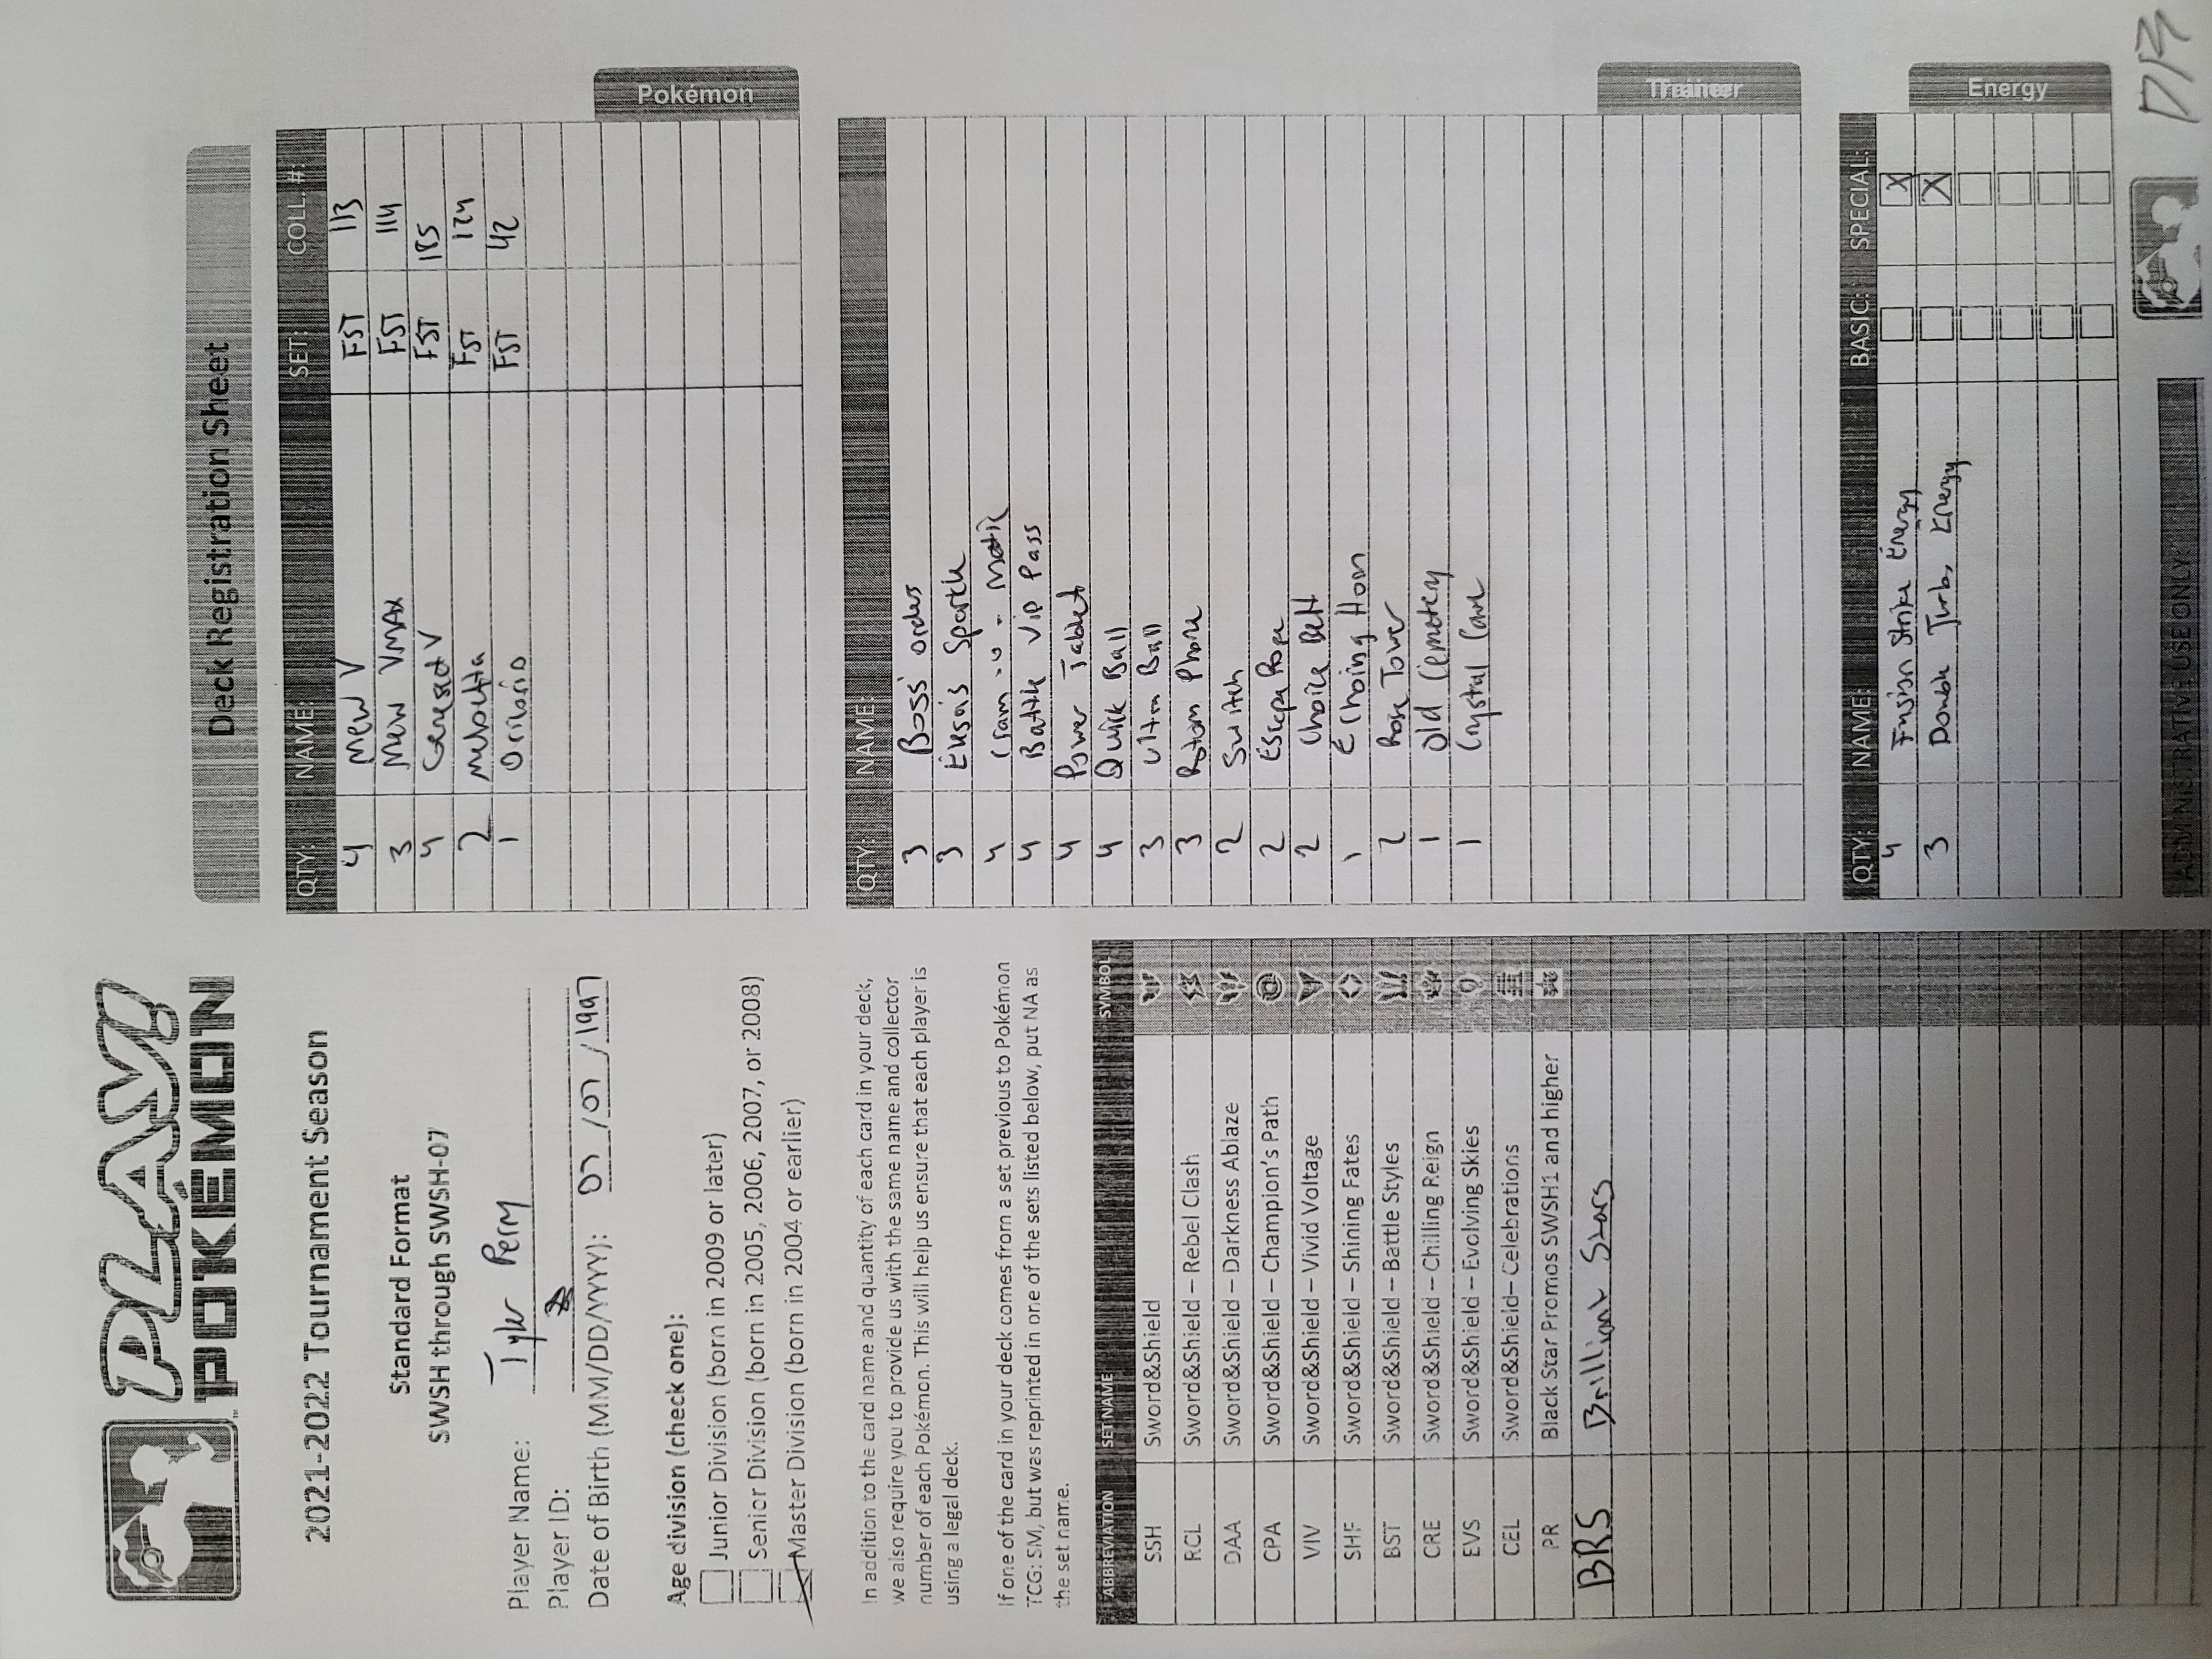 PLAY!
POKÉMON
2021-2022 Tournament Season
Standard Format
SWSH through SWSH-07
Player Name: Tyler Perry
Player ID:
Date of Birth (MM/DD/YYYY): 07/07/1997
Age division (check one):
Junior Division (born in 2009 or later)
Senior Division (born in 2005, 2006, 2007, or 2008)
Master Division (born in 2004 or earlier)
In addition to the card name and quantity of each card in your deck,
we also require you to provide us with the same name and collector
number of each Pokémon. This will help us ensure that each player is
using a legal deck.
If one of the card in your deck comes from a set previous to Pokémon
TCG: SM, but was reprinted in one of the sets listed below, put NA as
the set name.
ABBREVIATION SET NAME SYMBOL
SSH Sword&Shield
RCL Sword&Shield – Rebel Clash
DAA Sword&Shield – Darkness Ablaze
CPA Sword&Shield – Champion's Path
VIV Sword&Shield – Vivid Voltage
SHF Sword&Shield – Shining Fates
BST Sword&Shield – Battle Styles
CRE Sword&Shield – Chilling Reign
EVS Sword&Shield – Evolving Skies
CEL Sword&Shield– Celebrations
PR Black Star Promos SWSH1 and higher
BRS Brilliant Stars
Deck Registration Sheet
QTY: NAME: SET: COLL. #:
4 Mew V FST 113
3 Mew VMAX FST 114
4 Genesect V FST 185
2 Meloetta FST 124
1 Oricorio FST 42
Pokémon
QTY: NAME:
3 Boss' orders
3 Elesa's Sparkle
4 Cram-o-Matic
4 Battle Vip Pass
4 Power Tablet
4 Quick Ball
3 Ultra Ball
3 Rotom Phone
2 Switch
2 Escape Rope
2 Choice Belt
1 Echoing Horn
2 Rose Tower
1 Old Cemetery
1 Crystal Cave
Trainer
QTY: NAME: BASIC: SPECIAL:
4 Fusion Strike Energy X
3 Double Turbo Energy X
Energy
ADMINISTRATIVE USE ONLY: